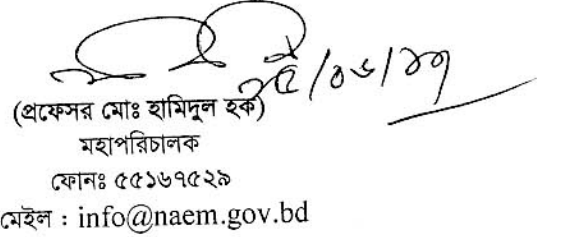 (প্রফেসর মোঃ হামিদুল হক)
মহাপরিচালক
ফোনঃ ৫৫১৬৭৫২৯
মেইল : info@naem.gov.bd